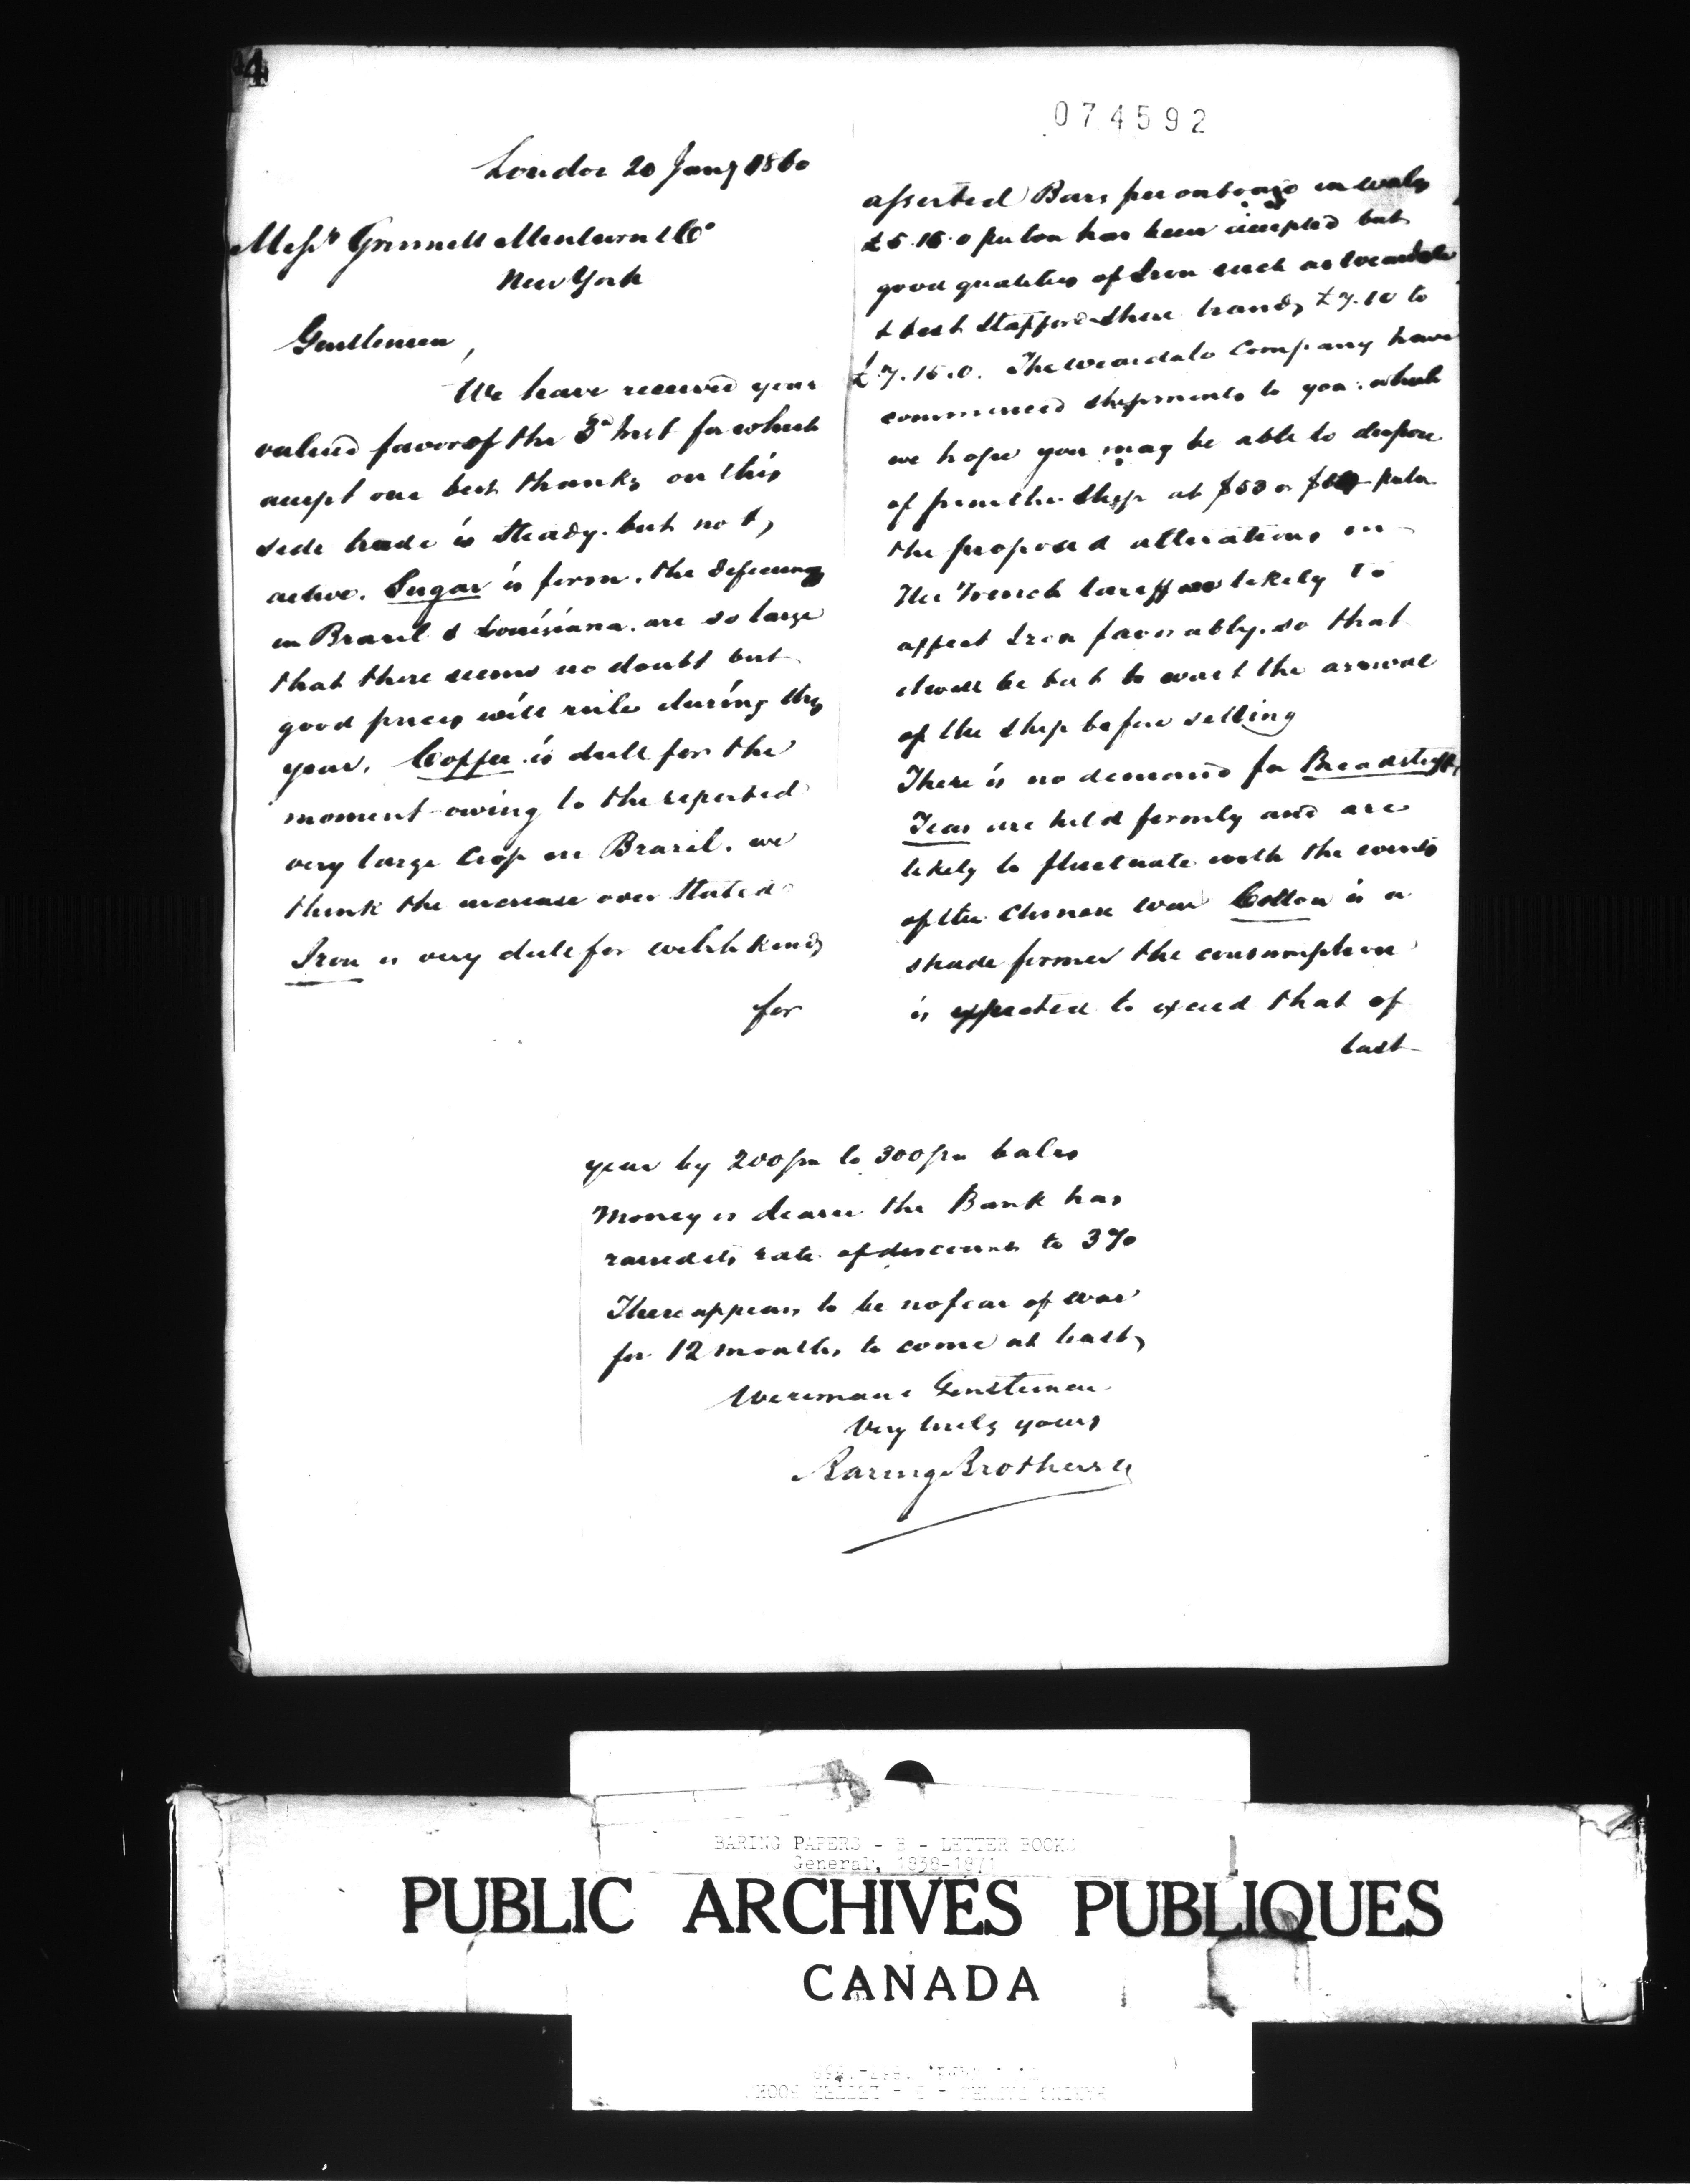 4
074592
London 20 Jany 1860
Messrs Grinnell Minturn & Co
New York
Gentlemen,
We have received your
valued favor of the 3d Inst for which
accept our best thanks on this
side trade is steady. but not,
active. Sugar is firm. the deficiency
in Brazil & Louisiana. are so large
that there seems no doubt but
good prices will rule during this
year. Coffee is dull for the
moment owing to the reported
very large Crop in Brazil. we
think the increase over stated
Iron is very dull for welsh kinds
for
assorted Bars free on board in wales
£5.15.0 per ton has been accepted but
good qualities of Iron such as Weardale
& best Staffordshire brands £7.10 to
£7.15.0. The Weardale Company have
commenced shipments to you. which
we hope you may be able to dispose
of from the Ship at $58 or per ton
the proposed alterations in
the French tariff are likely to
affect Iron favorably. so that
it will be best to wait the arrival
of the ship before selling
There is no demand for Breadstuffs
Teas are held firmly and are
likely to fluctuate with the events
of the Chinese war Cotton is a
shade firmer the consumption
is expected to exceed that of
last
year by 200/m to 300/m bales
Money is dearer the Bank has
raised its rate of discount to 3%
There appears to be no fear of war
for 12 months to come at least,
We remain Gentlemen
Very truly yours
Baring Brothers &
BARING PAPERS - B - LETTER BOOKS
General, 1838-1871
PUBLIC ARCHIVES PUBLIQUES
CANADA